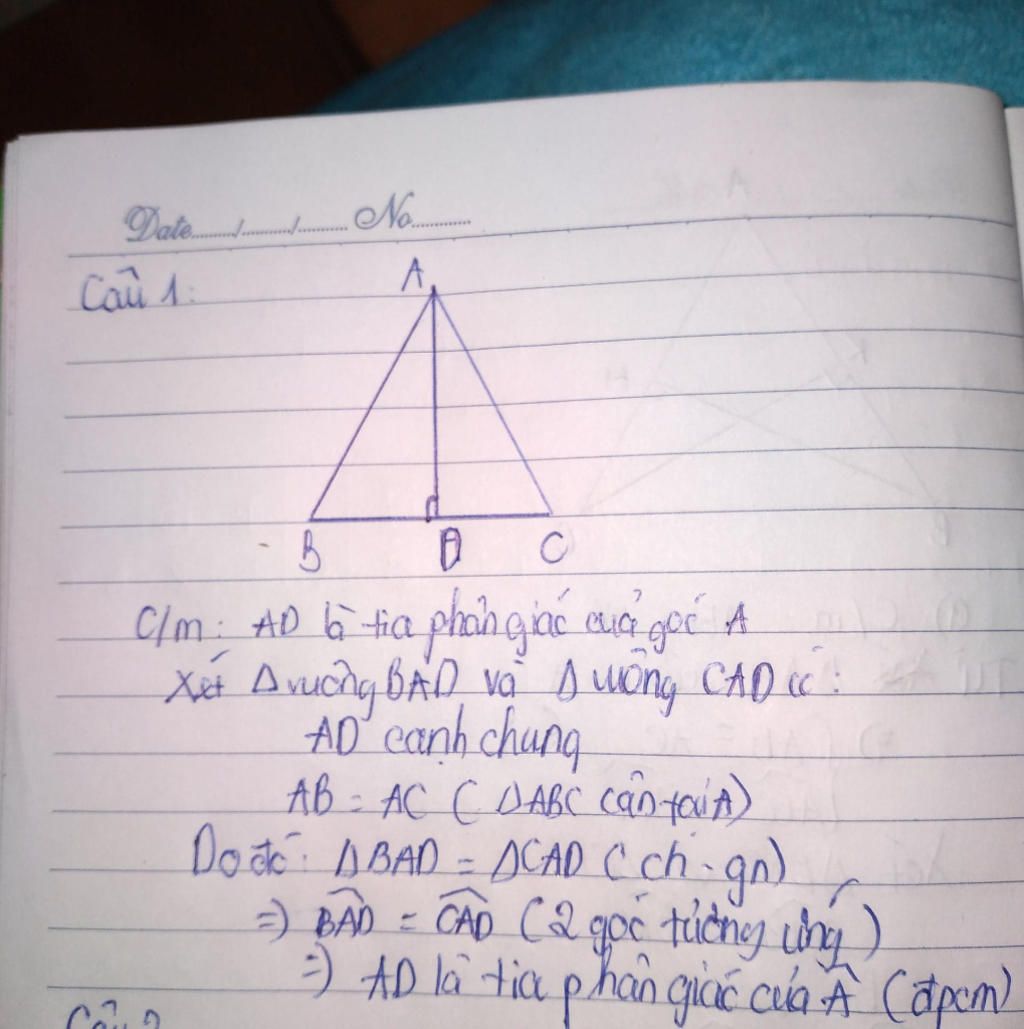 Date....../....../...... No..........
Câu 1:
A
B D C
C/m: AD là tia phân giác của góc A
Xét Δ vuông BAD và Δ vuông CAD có:
AD cạnh chung
AB = AC ( ΔABC cân tại A)
Do đó: ΔBAD = ΔCAD ( ch - gn)
=) BAD = CAD ( 2 góc tương ứng )
=) AD là tia phân giác của Â (đpcm)
Câu 2